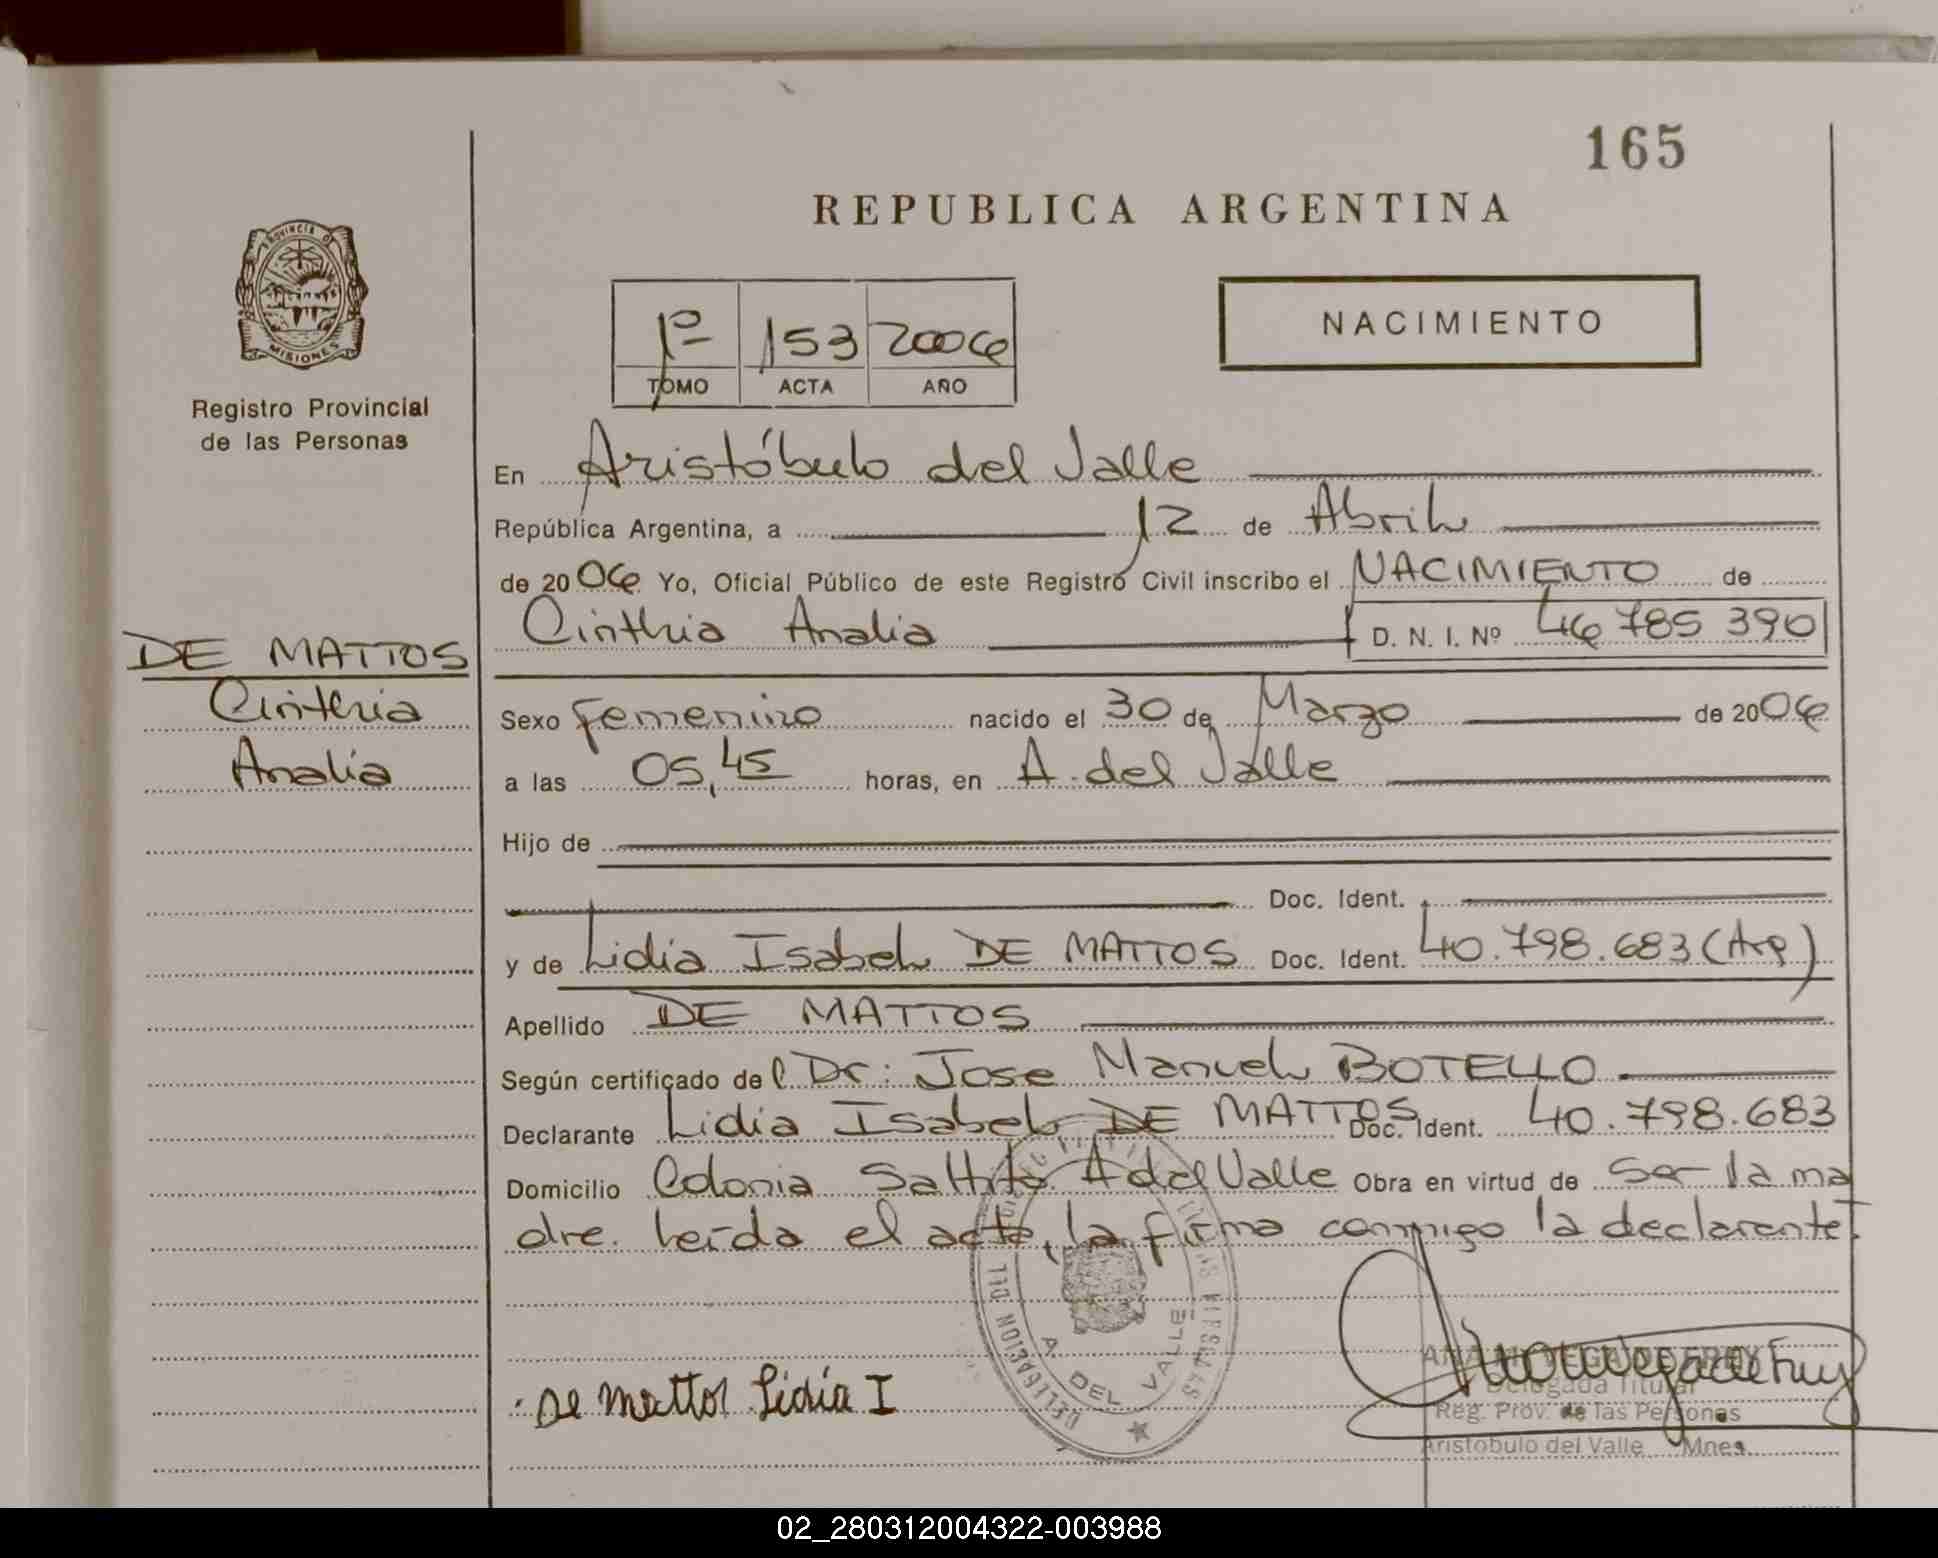 165
REPUBLICA ARGENTINA
PROVINCIA DE
MISIONES
Registro Provincial
de las Personas
1º 153 2006
TOMO ACTA AÑO
NACIMIENTO
En Aristóbulo del Valle
República Argentina, a 12 de Abril
de 2006 Yo, Oficial Público de este Registro Civil inscribo el NACIMIENTO de
Cinthia Analia D. N. I. Nº 46 785 390
DE MATTOS
Cinthia
Analia
Sexo Femenino nacido el 30 de Marzo de 2006
a las 05,45 horas, en A. del Valle
Hijo de
Doc. Ident.
y de Lidia Isabel DE MATTOS Doc. Ident. 40.798.683 (Arg)
Apellido DE MATTOS
Según certificado del Dr: Jose Manuel BOTELLO
Declarante Lidia Isabel DE MATTOS Doc. Ident. 40.798.683
Domicilio Colonia Saltito A del Valle Obra en virtud de Ser la ma
dre. Leída el acta, la firma conmigo la declarante.
DELEGACION DEL
A. DEL VALLE
MISIONES
De Mattos Lidia I
Delegada Titular
Reg. Prov. de las Personas
Aristobulo del Valle Mnes.
02_280312004322-003988